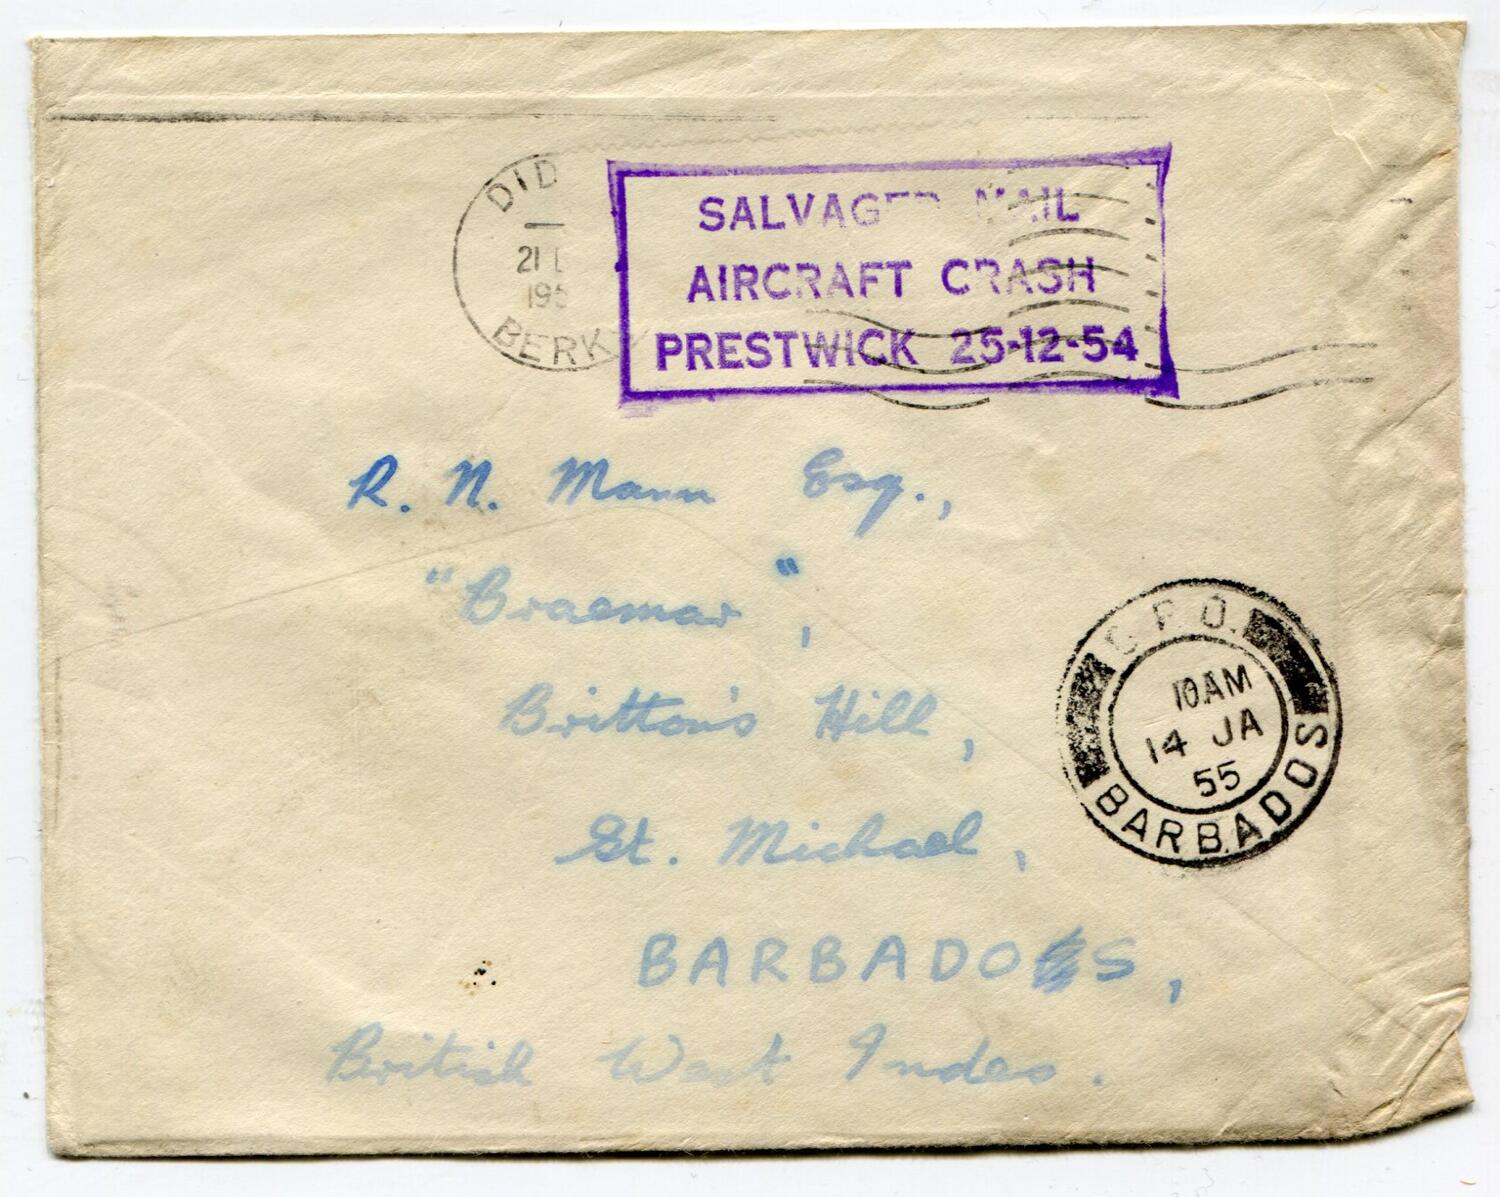 DID
21 D
195
BERK
SALVAGED MAIL
AIRCRAFT CRASH
PRESTWICK 25-12-54
R. N. Mann Esq.,
"Braemar",
Britton's Hill,
St. Michael,
BARBADOS,
British West Indes.
G.P.O.
10AM
14 JA
55
BARBADOS